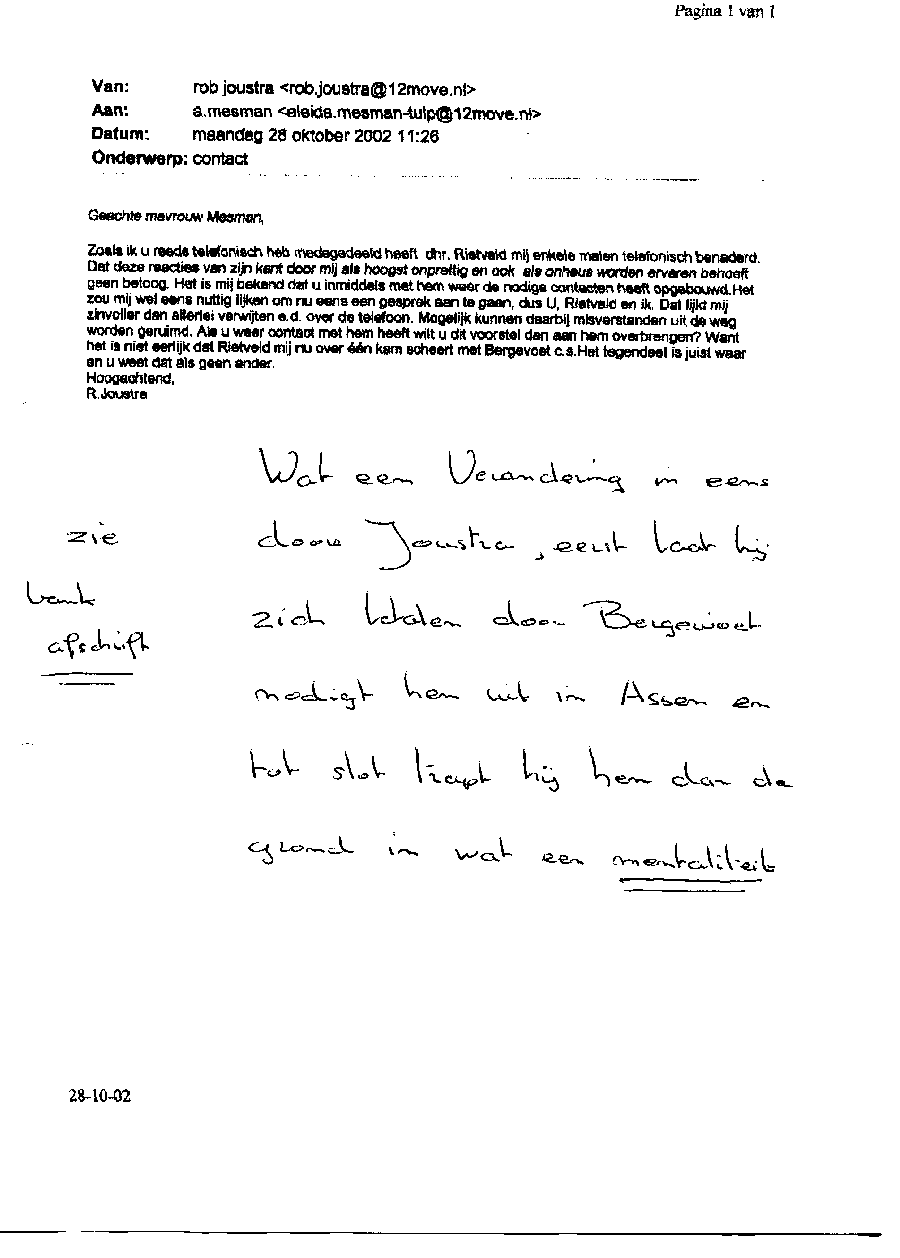 Pagina 1 van 1
Van: rob joustra <rob.joustra@12move.nl>
Aan: a.mesman <aleida.mesman-tulp@12move.nl>
Datum: maandag 28 oktober 2002 11:26
Onderwerp: contact
Geachte mevrouw Mesman,
Zoals ik u reeds telefonisch heb medegedeeld heeft dhr. Rietveld mij enkele malen telefonisch benaderd.
Dat deze reacties van zijn kant door mij als hoogst onprettig en ook als onheus worden ervaren behoeft
geen betoog. Het is mij bekend dat u inmiddels met hem weer de nodige contacten heeft opgebouwd.Het
zou mij wel eens nuttig lijken om nu eens een gesprek aan te gaan, dus U, Rietveld en ik. Dat lijkt mij
zinvoller dan allerlei verwijten e.d. over de telefoon. Mogelijk kunnen daarbij misverstanden uit de weg
worden geruimd. Als u weer contact met hem heeft wilt u dit voorstel dan aan hem overbrengen? Want
het is niet eerlijk dat Rietveld mij nu over één kam scheert met Bergevoet c.s.Het tegendeel is juist waar
en u weet dat als geen ander.
Hoogachtend,
R.Joustra
Wat een Verandering in eens
zie
door Joustra, eerst laat hij
bank
zich betalen door Bergevoet
afschrift
nodigt hem uit in Assen en
tot slot trapt hij hem dan de
grond in wat een mentaliteit
28-10-02